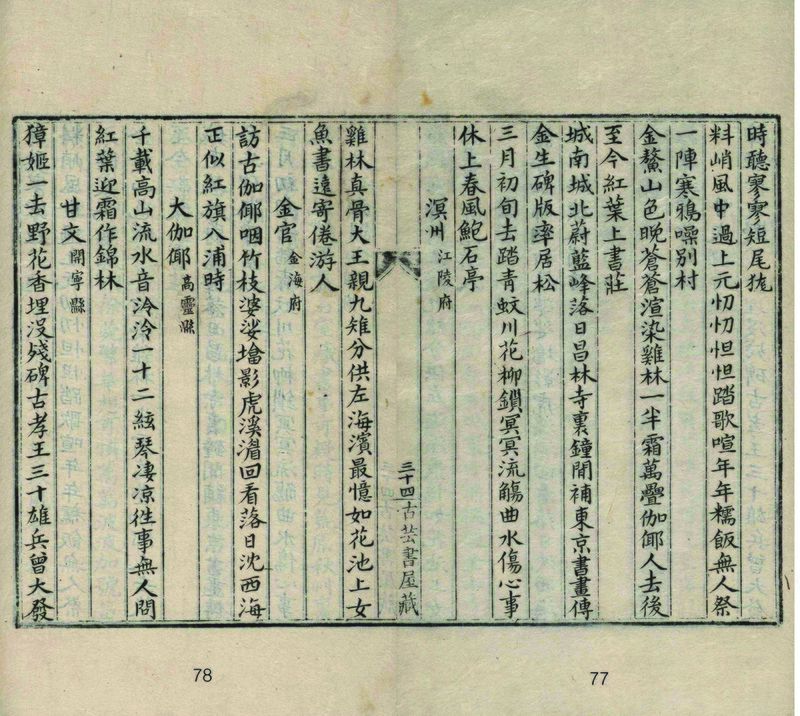 時聽寥寥短尾狵
料峭風中過上元忉忉怛怛踏歌喧年年糯飯無人祭
一陣寒鴉噪別村
金鰲山色晚蒼蒼渲染雞林一半霜萬疊伽倻人去後
至今紅葉上書莊
城南城北蔚藍峰落日昌林寺裏鐘閒補東京書畫傳
金生碑版率居松
三月初旬去踏青蚊川花柳鎖冥冥流觴曲水傷心事
休上春風鮑石亭
溟州 江陵府
三十四古芸書屋藏
雞林真骨大王親九雉分供左海濱最憶如花池上女
魚書遠寄倦游人
金官 金海府
訪古伽倻咽竹枝婆娑㙮影虎溪湄回看落日沈西海
正似紅旗入浦時
大伽倻 高靈縣
千載高山流水音泠泠一十二絃琴凄凉徃事無人問
紅葉迎霜作錦林
甘文 開寧縣
獐姬一去野花香埋没殘碑古孝王三十雄兵曾大發
78
77